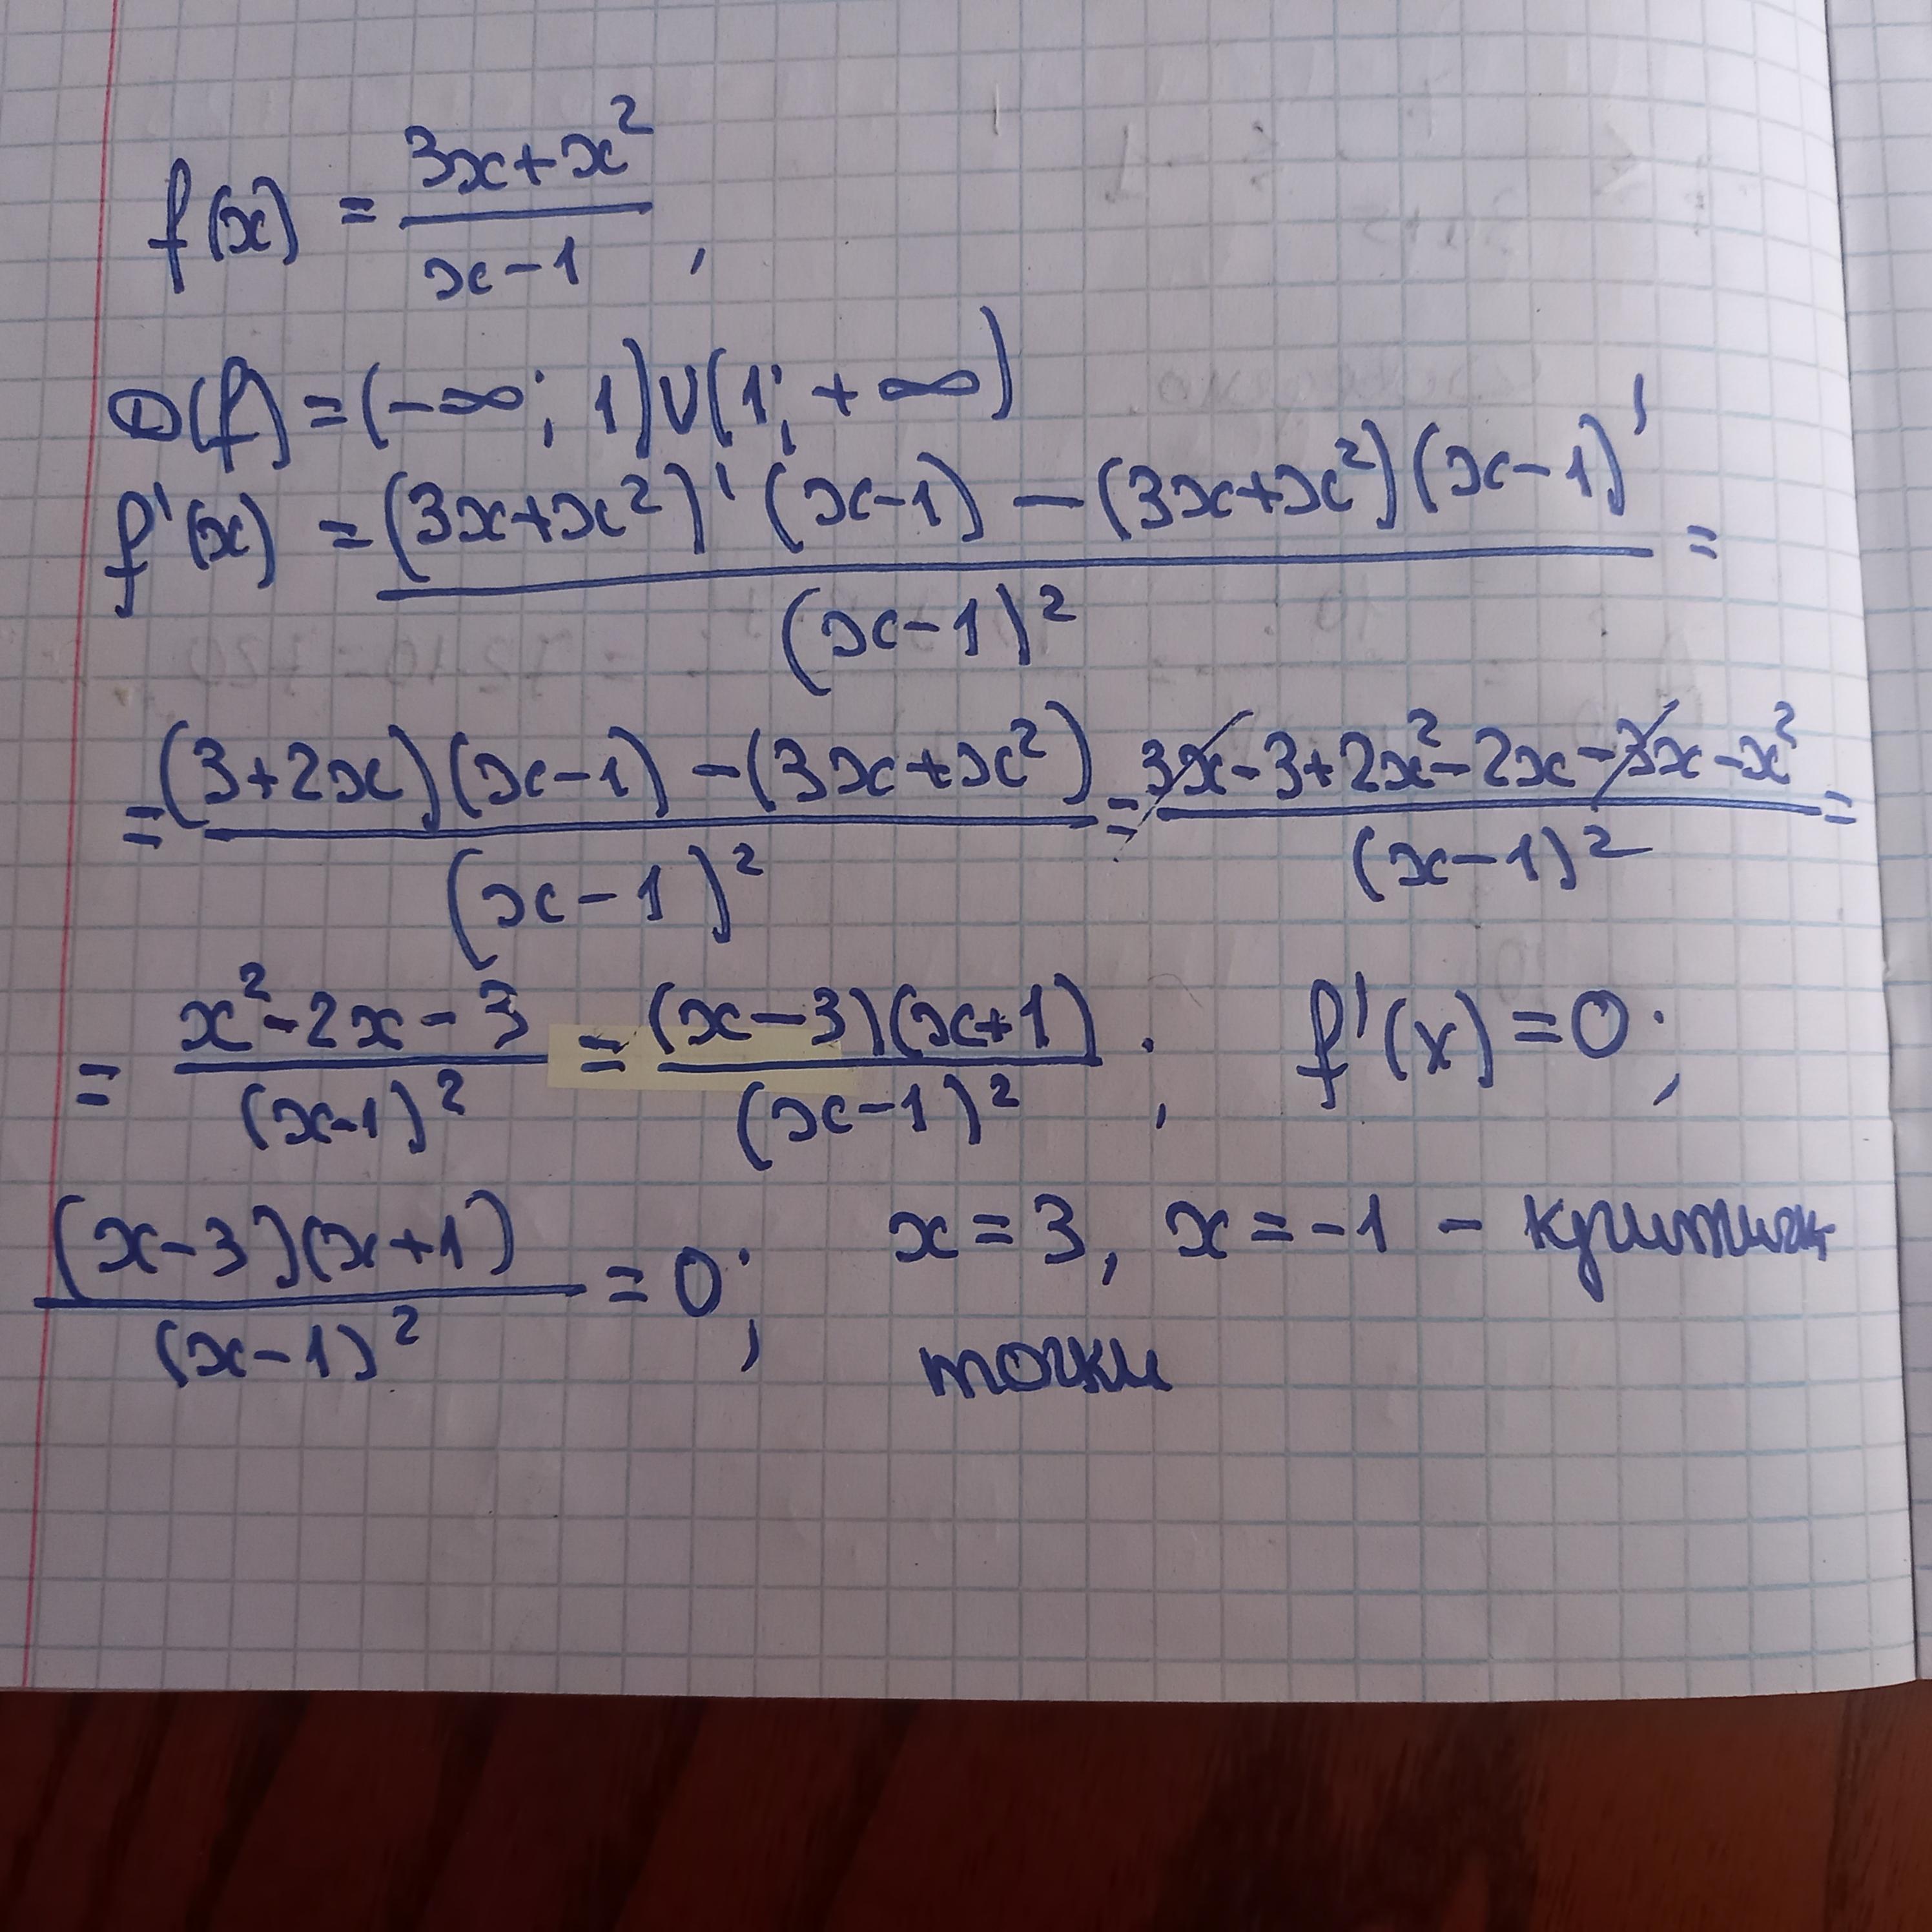 f(x) = (3x+x²)/(x-1),
D(f) = (-∞; 1)∪(1; +∞)
f'(x) = ((3x+x²)'(x-1) - (3x+x²)(x-1)')/(x-1)² =
= ((3+2x)(x-1) - (3x+x²))/(x-1)² = (3x-3+2x²-2x-3x-x²)/(x-1)² =
= (x²-2x-3)/(x-1)² = ((x-3)(x+1))/(x-1)²; f'(x) = 0;
((x-3)(x+1))/(x-1)² = 0; x = 3, x = -1 -
точки